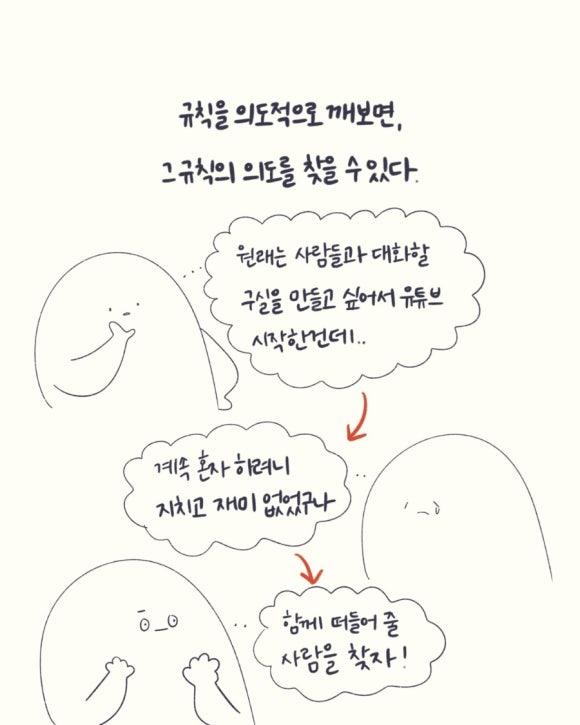 규칙을 의도적으로 깨보면,
그 규칙의 의도를 찾을 수 있다.
원래는 사람들과 대화할
구실을 만들고 싶어서 유튜브
시작한건데..
계속 혼자 하려니
지치고 재미 없었구나
함께 떠들어 줄
사람을 찾자!